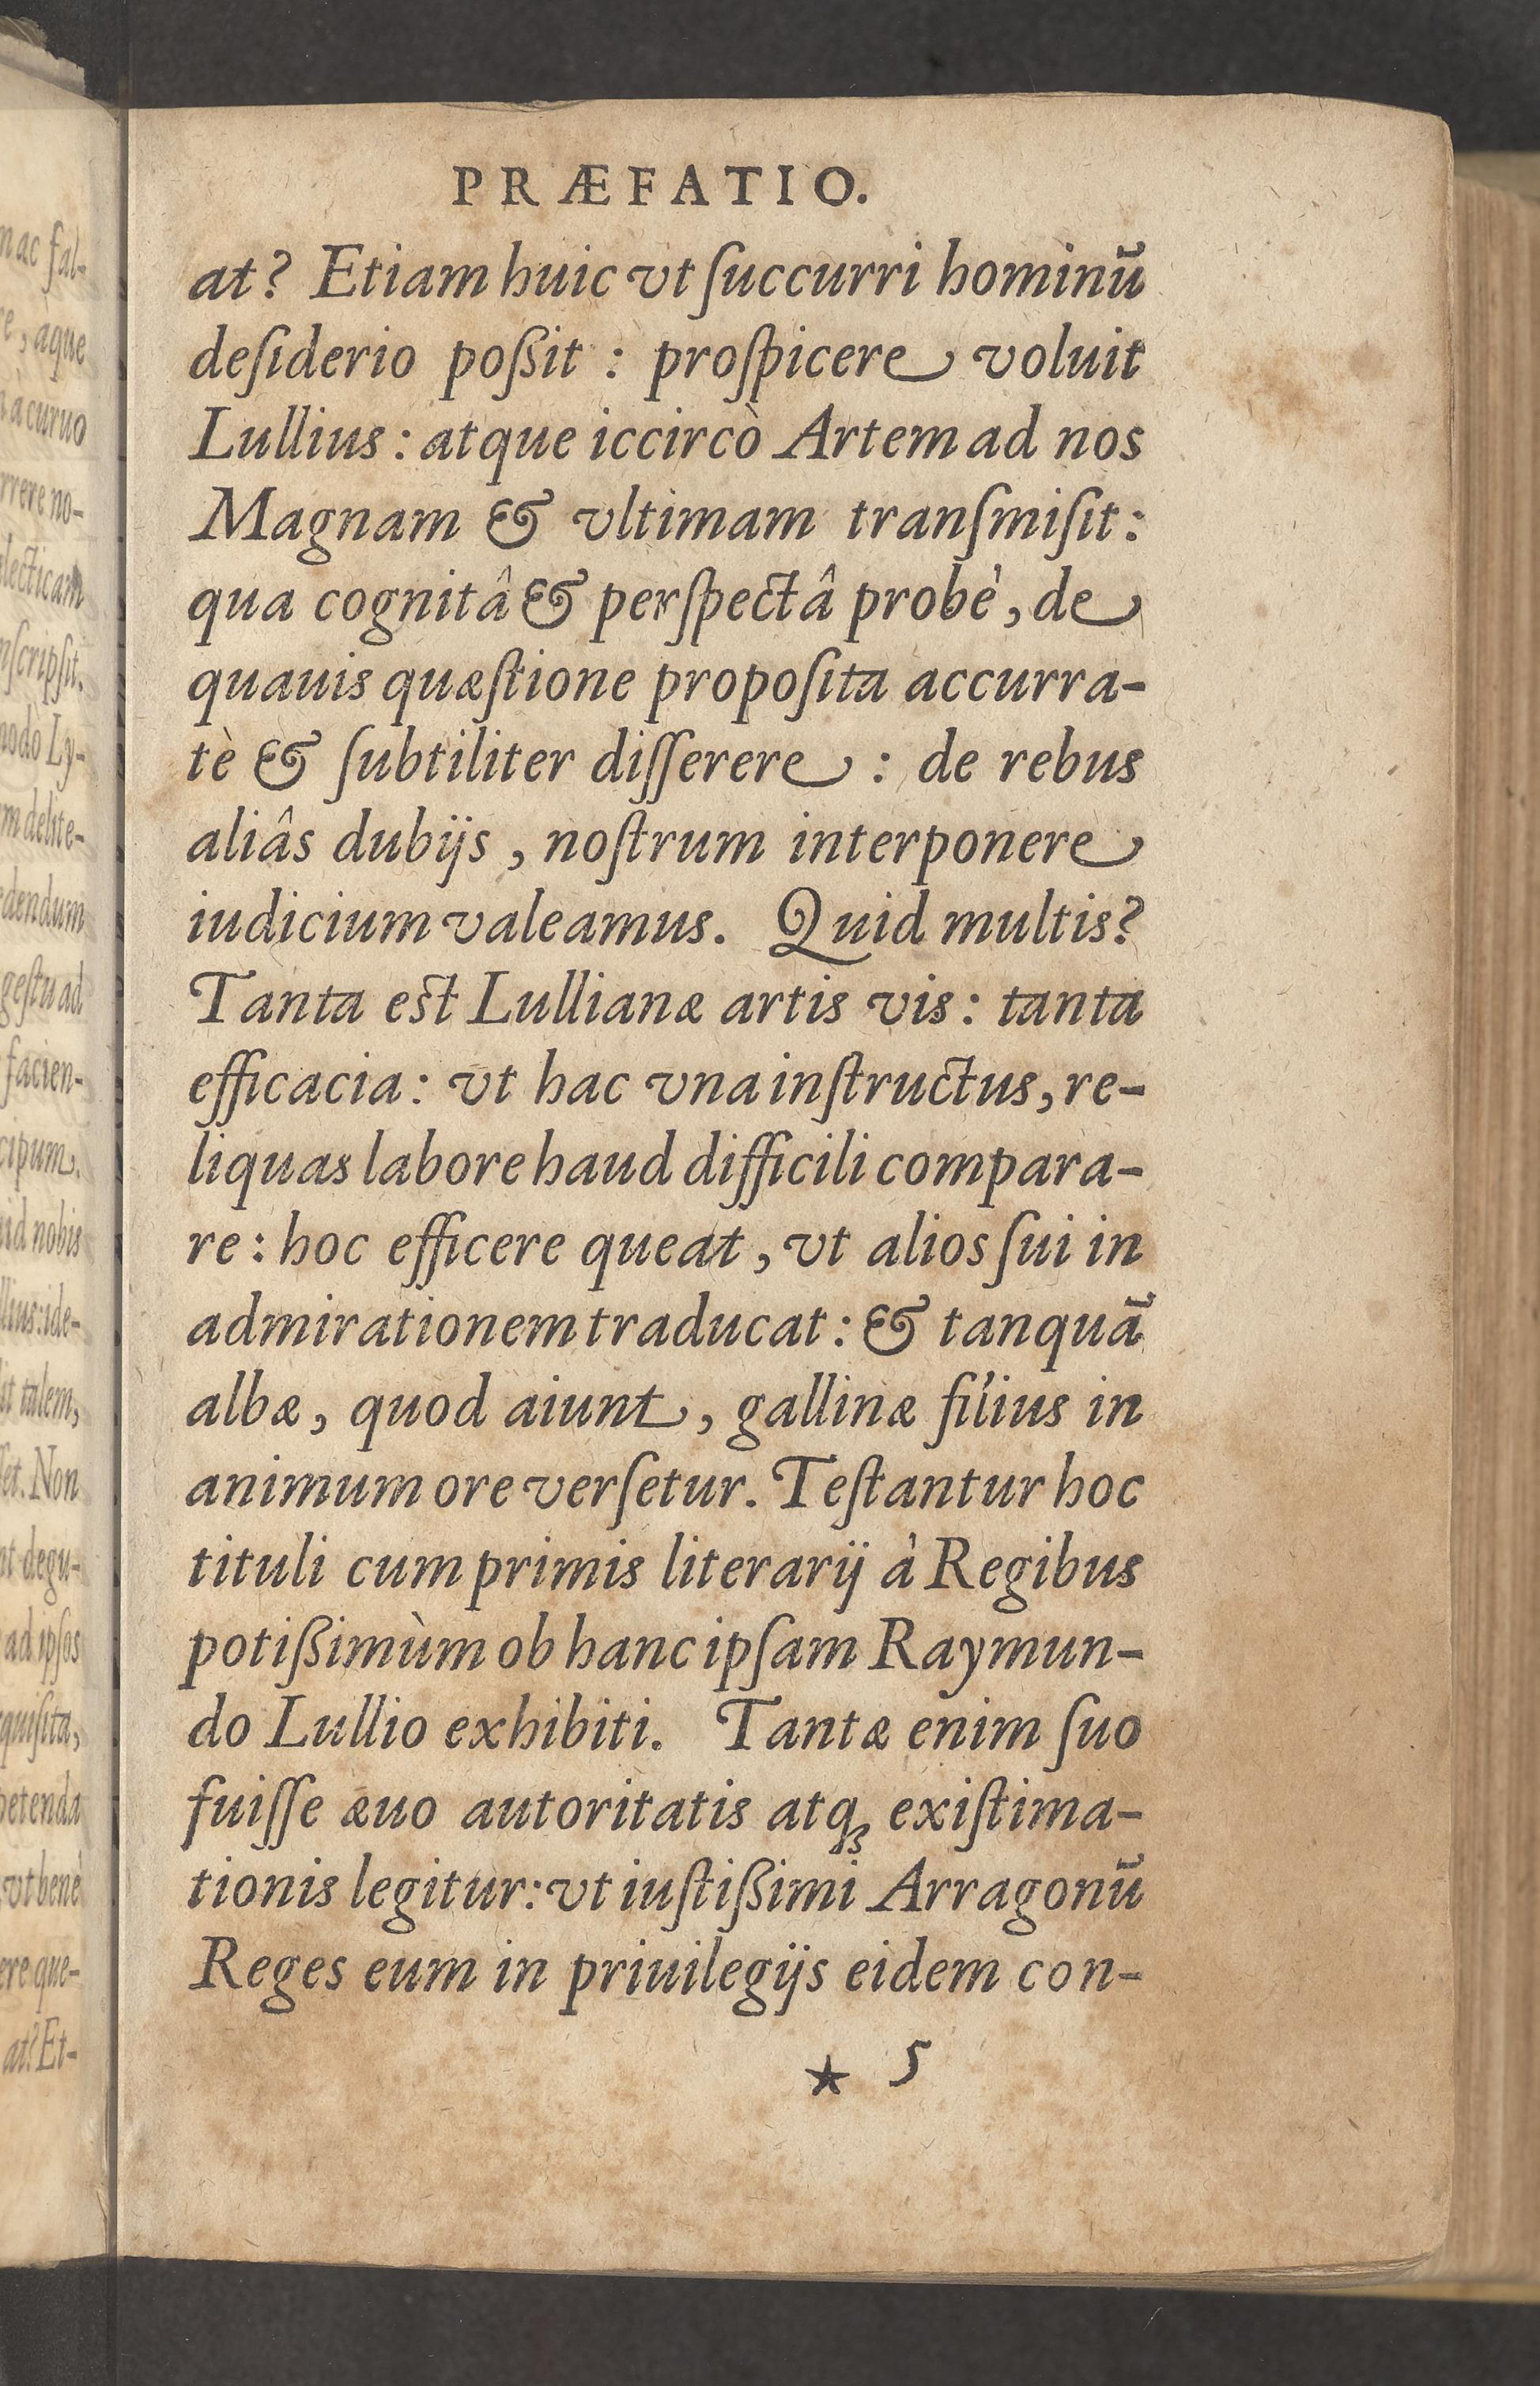 PRÆFATIO.
at? Etiam huic vt ſuccurri hominū
deſiderio poßit : proſpicere voluit
Lullius : atque iccircò Artem ad nos
Magnam & vltimam tranſmiſit:
qua cognitâ & perſpectâ probè, de
quauis quæſtione propoſita accurra-
tè & ſubtiliter diſſerere : de rebus
aliâs dubijs, noſtrum interponere
iudicium valeamus. Quid multis?
Tanta est Lullianæ artis vis: tanta
efficacia: vt hac vna inſtructus, re-
liquas labore haud difficili compara-
re: hoc efficere queat, vt alios ſui in
admirationem traducat: & tanquā
albæ, quod aiunt, gallinæ filius in
animum ore verſetur. Teſtantur hoc
tituli cum primis literarij à Regibus
potißimùm ob hanc ipſam Raymun-
do Lullio exhibiti. Tantæ enim ſuo
fuiſſe æuo autoritatis atqꝫ exiſtima-
tionis legitur: vt iuſtißimi Arragonū
Reges eum in priuilegijs eidem con-
★ 5